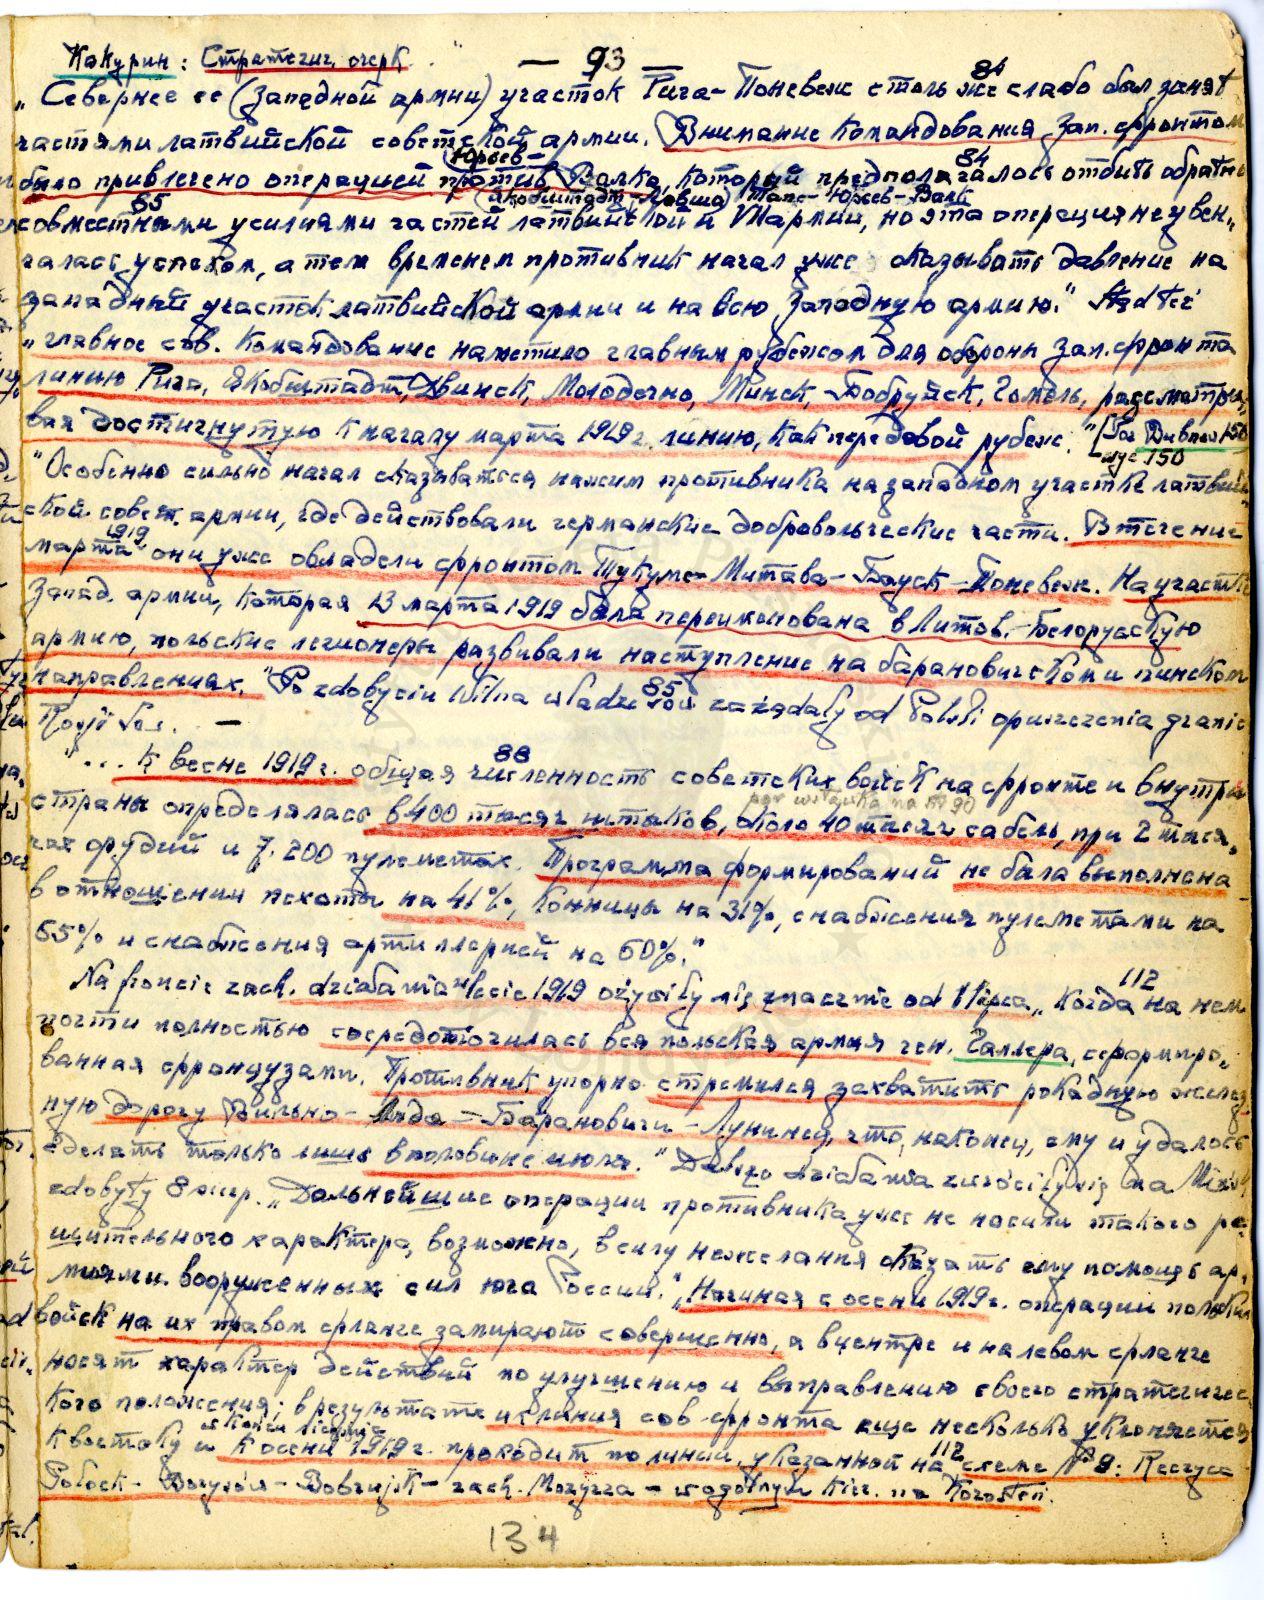 Какурин: Стратегич. очерк.
— 93 —
84
„Севернее ее (Западной армии) участок Рига–Поневеж столь же слабо был занят
частями латвийской советской армии. Внимание командования Зап. фронтом
Юрьев– 84
было привлечено операцией против Валка, который предполагалось отбить обратно
85 (Якобштадт– Юрьев–Валк
совместными усилиями частей латвийской и 7 армии, но эта операция не увен-
чалась успехом, а тем временем противник начал уже оказывать давление на
западный участок латвийской армии и на всю Западную армию." Stąd też
„главное сов. командование наметило главным рубежом для обороны Зап. фронта
линию Рига, Якобштадт, Двинск, Молодечно, Минск, Бобруйск, Гомель, рассматри-
вая достигнутую к началу марта 1919 г. линию, как передовой рубеж."
150
"Особенно сильно начал сказываться нажим противника на западном участке латвий-
ской совет. армии, где действовали германские добровольческие части. В течение
1919
марта они уже овладели фронтом Тукумс–Митава–Бауск–Поневеж. На участке
Запад. армии, которая 13 марта 1919 была переименована в Литов.-Белорусскую
армию, польские легионеры развивали наступление на барановичском и пинском
85
направлениях." Po zdobyciu Wilna władze sow zażądały od Polski opuszczenia granic
Rosji Sow. —
88
"... К весне 1919 г. общая численность советских войск на фронте и внутри
страны определялась в 400 тысяч штыков, около 40 тысяч сабель, при 2 тыся-
чах орудий и 7.200 пулеметах. Программа формирований не была выполнена
в отношении пехоты на 41%, конницы на 31%, снабжения пулеметами на
55% и снабжения артиллерией на 60%."
112
Na froncie zach. działania w lecie 1919 ożywiły się znacznie od 1 lipca, „Когда на нем
почти полностью сосредоточилась вся польская армия ген. Галлера, сформиро-
ванная французами. Противник упорно стремился захватить рокадную желез-
ную дорогу Вильно–Лида–Барановичи–Лунинец, что, наконец, ему и удалось
сделать только лишь в половине июля." Dalsze działania zwróciły się na Mińsk
zdobyty 8 sierp. „Дальнейшие операции противника уже не носили такого ре-
шительного характера, возможно, в силу нежелания оказать ему помощь ар-
миями вооруженных сил юга России." „Начиная с осени 1919 г. операции польских
войск на их правом фланге замирают совершенно, а в центре и на левом фланге
носят характер действий по улучшению и выправлению своего стратегичес-
кого положения; в результате их линия сов. фронта еще несколько уклоняется
112
к востоку и к осени 1919 г. проходит по линии, указанной на схеме № 9: Rzeczyca
Połock – Borysów – Bobrujsk – zach. Mozyrza – w ogólnym kier. na Korosteń.
134